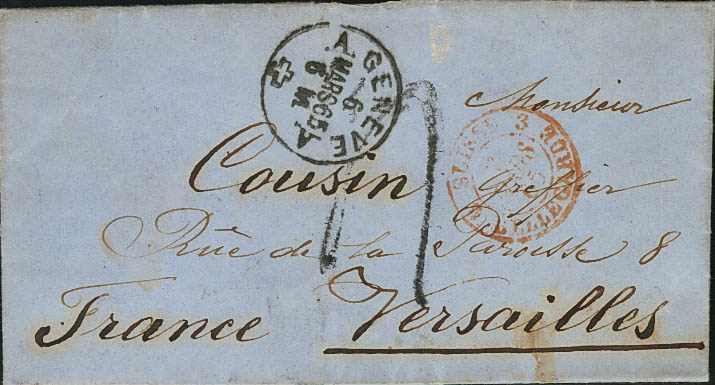 A. GENEVE A
6
MARS 65
6 M
Monsieur
SUISSE 3
BELLEGARDE
Cousin Greffier
Rue de la Paroisse 8
France Versailles